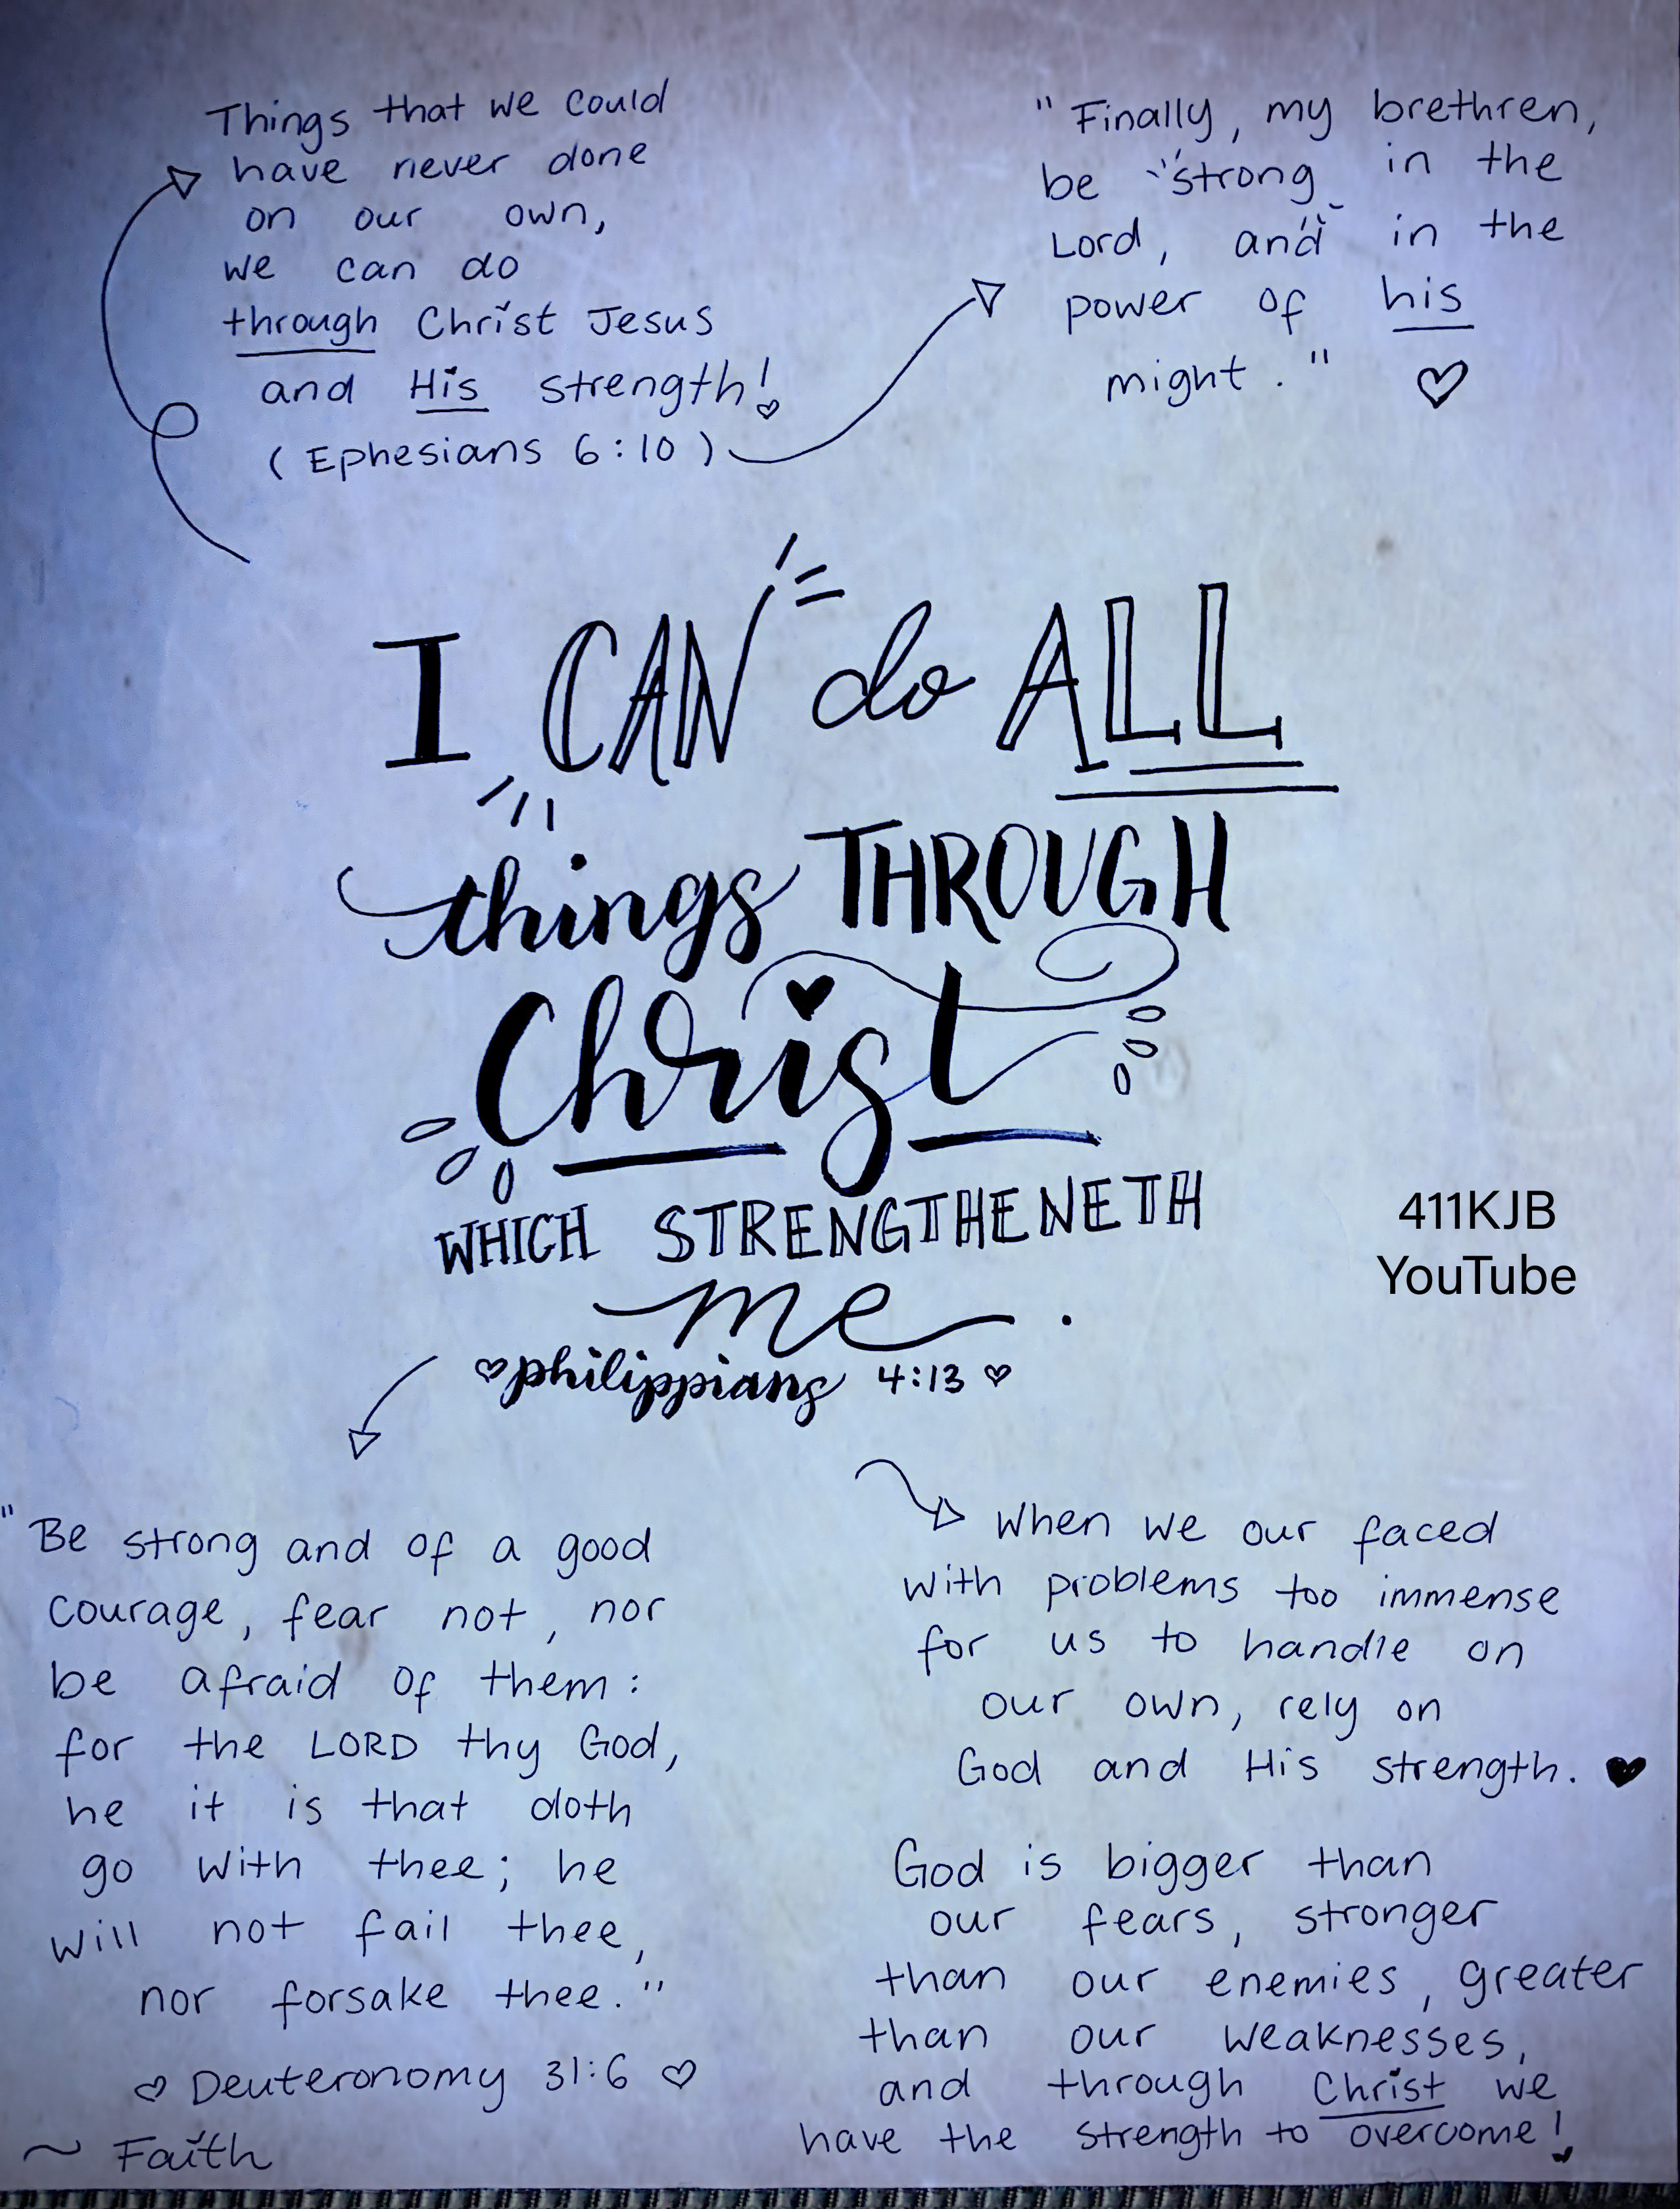 Things that we could
have never done
on our own,
we can do
through Christ Jesus
and His strength!
(Ephesians 6:10)
"Finally, my brethren,
be strong in the
Lord, and in the
power of his
might."
I CAN do ALL
things THROUGH
Christ
WHICH STRENGTHENETH
me.
philippians 4:13
411KJB
YouTube
"Be strong and of a good
courage, fear not, nor
be afraid of them:
for the LORD thy God,
he it is that doth
go with thee; he
will not fail thee,
nor forsake thee."
Deuteronomy 31:6
~ Faith
When we our faced
with problems too immense
for us to handle on
our own, rely on
God and His strength.
God is bigger than
our fears, stronger
than our enemies, greater
than our weaknesses,
and through Christ we
have the strength to overcome!